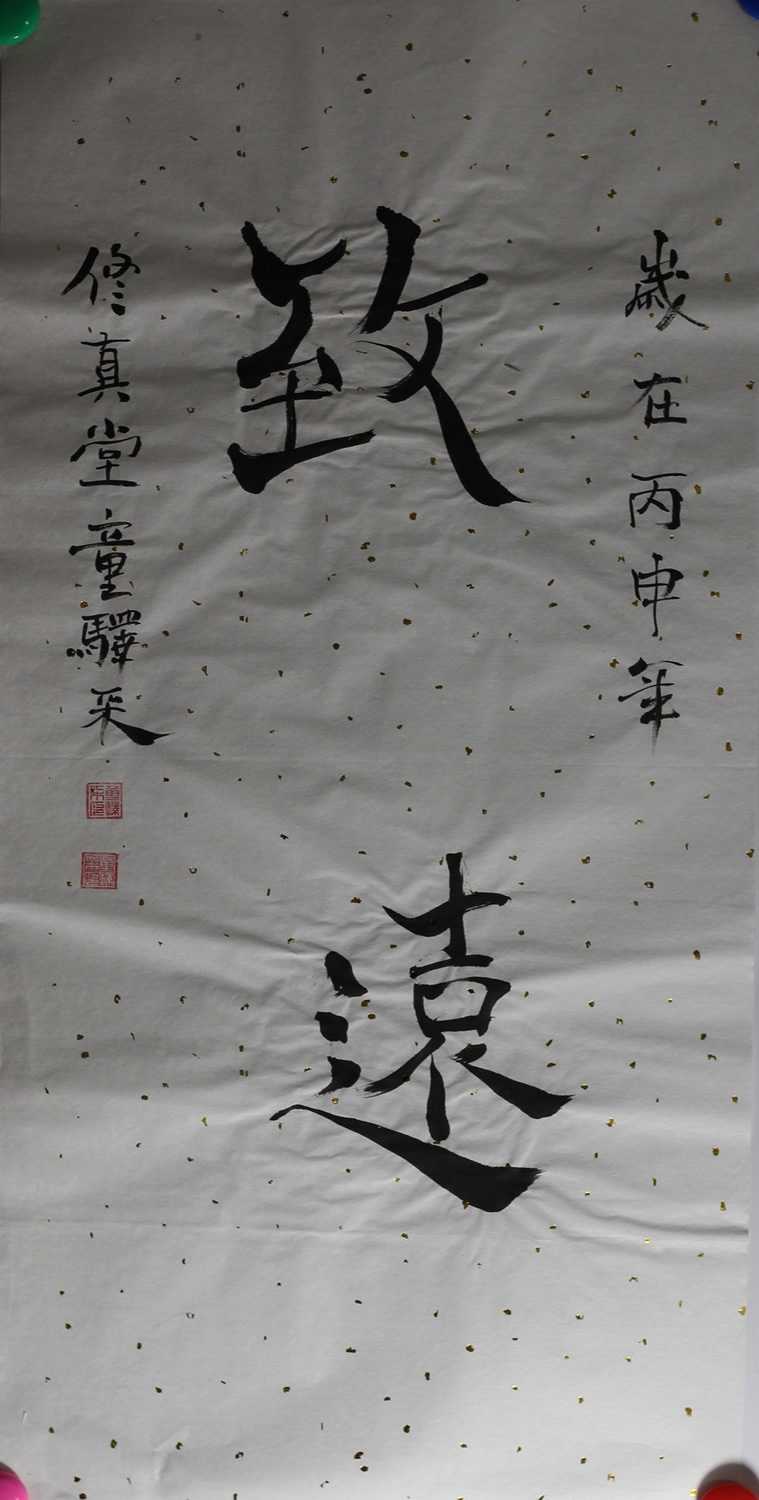 歲在丙申年
致遠
修真堂童驛采